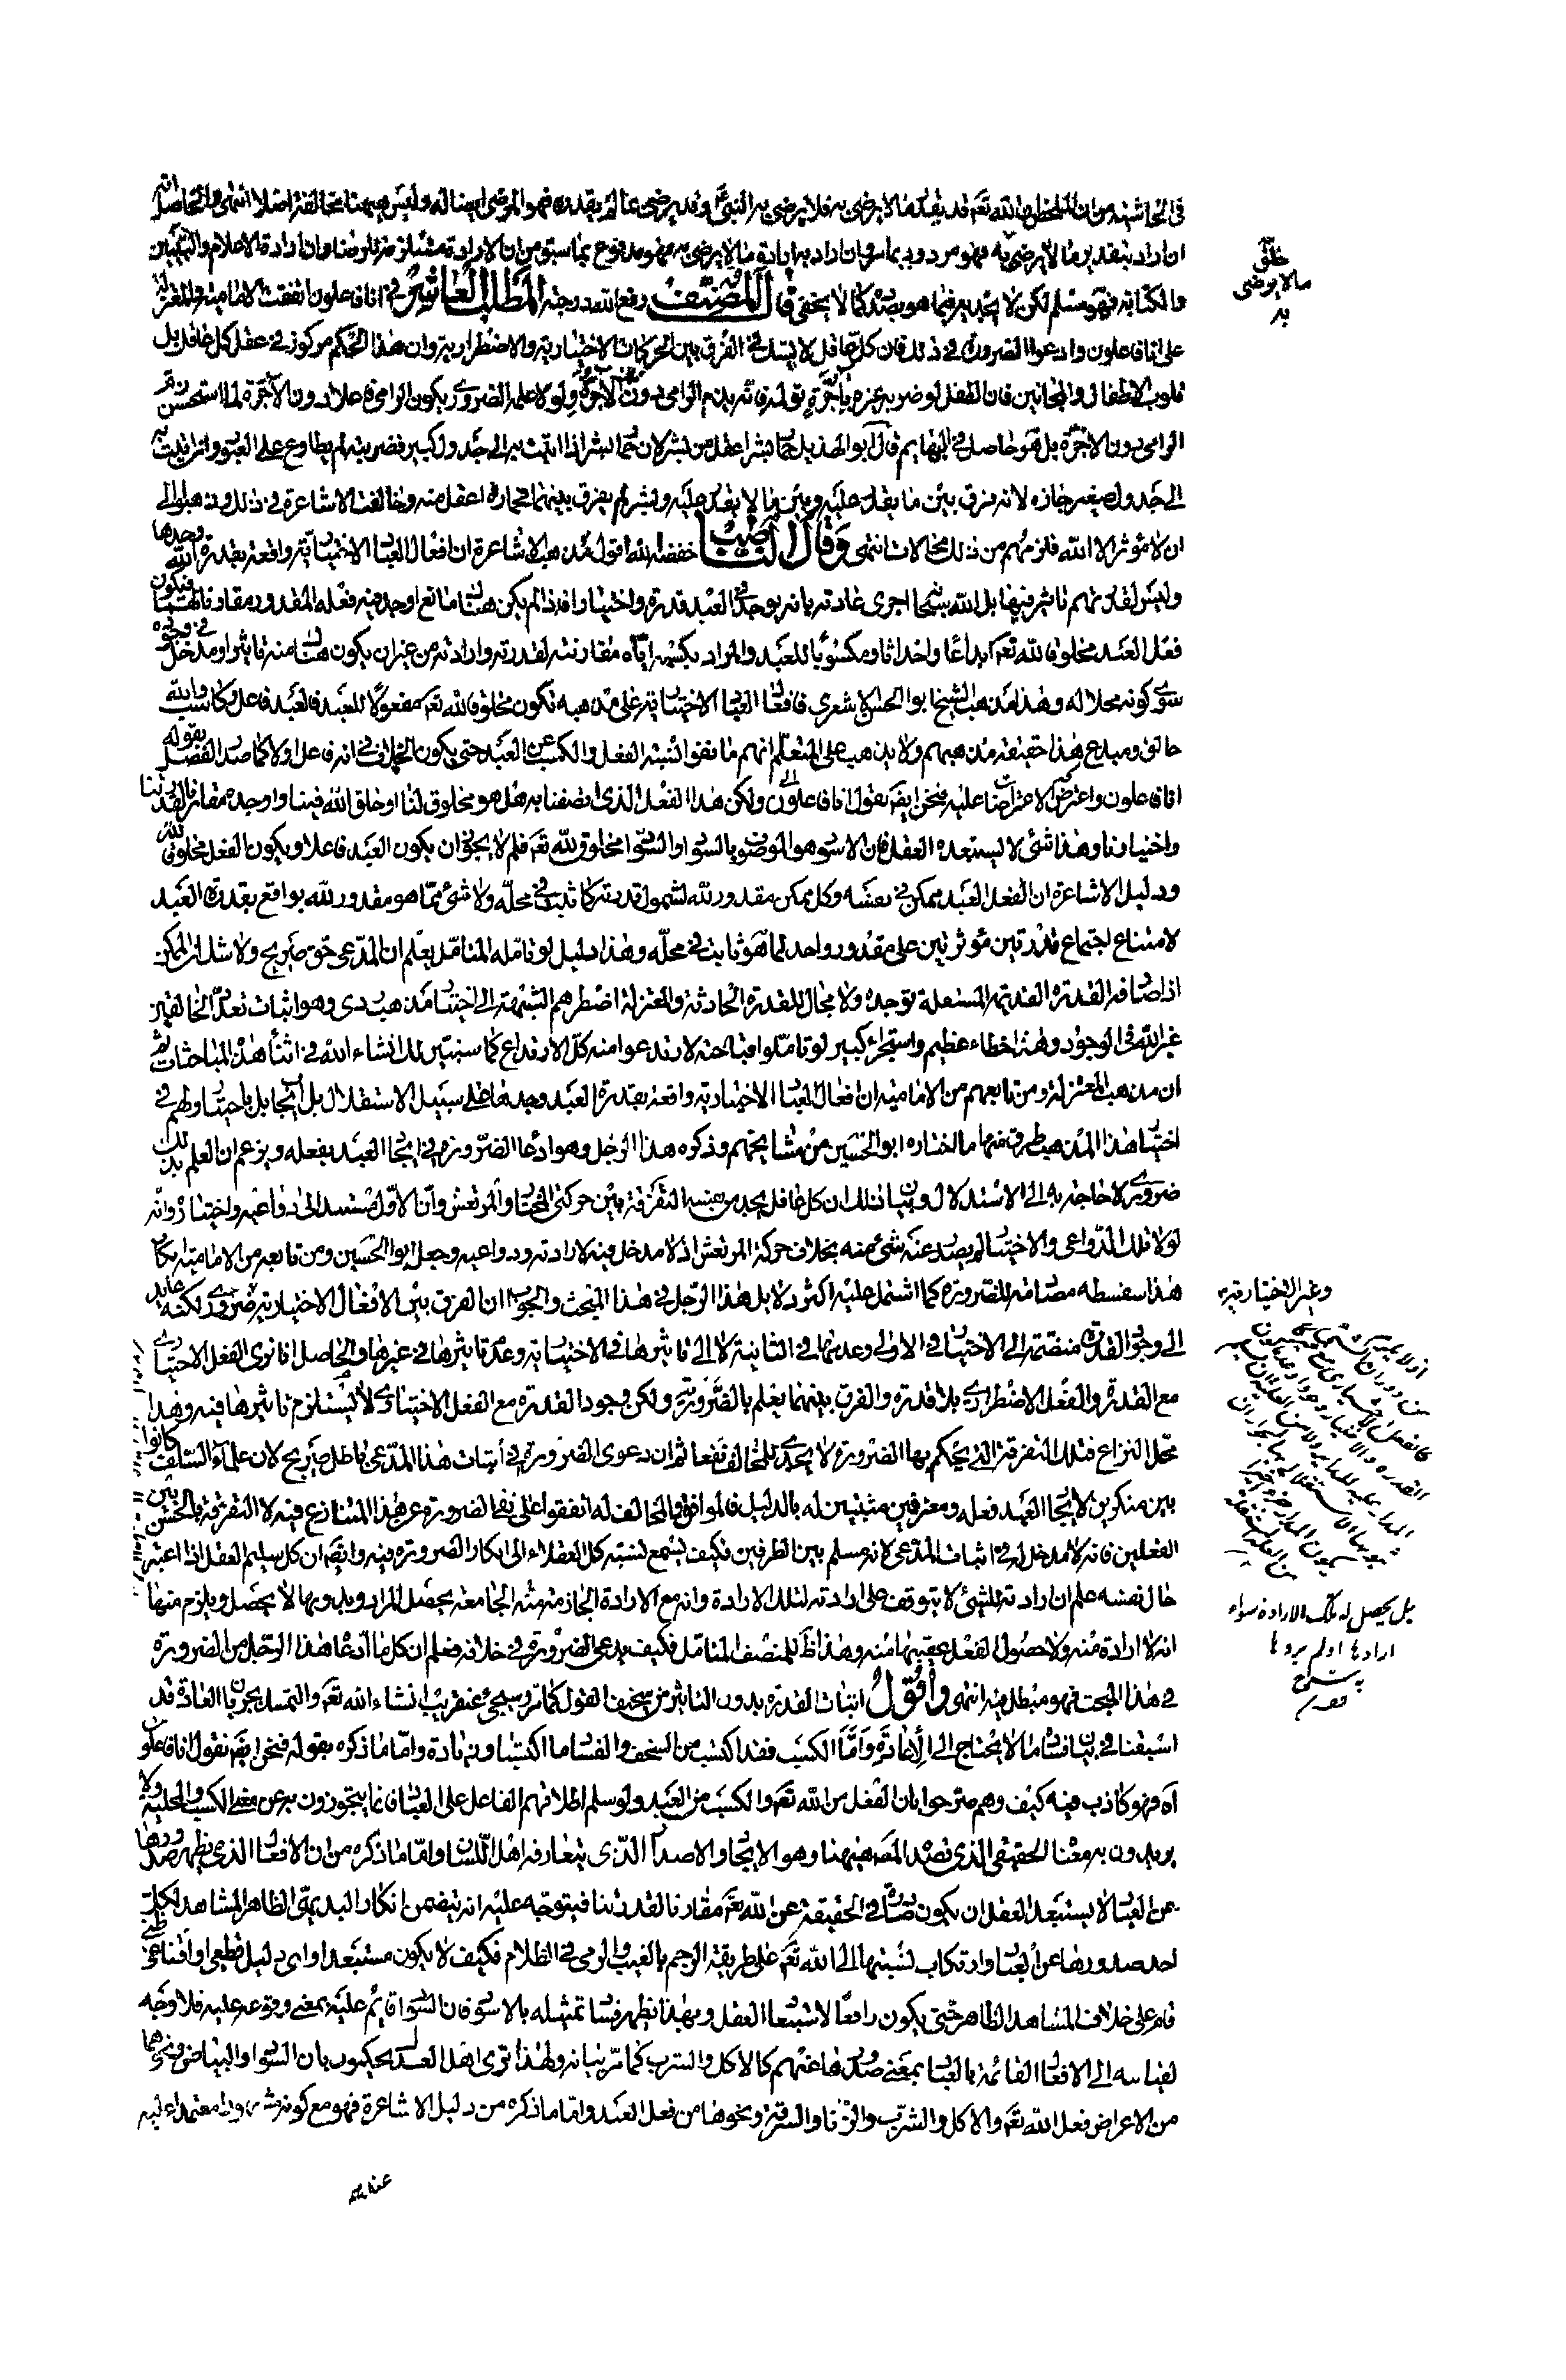 ان اراد بتقدير ما لا يرضى به فهو مردود بما مر وان اراد به ارادة ما لا يرضى به فهو مدفوع بما سبق من ان الارادة مستلزمة للرضا وان ارادة الاعلام والتبيين
والكتابة فهو مسلم لكن لا يجديه فيما هو بصدده كما لا يخفى قال المصنف رفع الله درجته المطلب العاشر في انا فاعلون اتفقت الامامية والمعتزلة
على انا فاعلون وادعوا الضرورة في ذلك فان كل عاقل لا يشك في الفرق بين الحركات الاختيارية والاضطرارية وان هذا الحكم مركوز في عقل كل عاقل بل
قلوب الاطفال والمجانين فان الطفل لو ضربه غيره بآجرة تؤلمه فانه يذم الرامي دون الآجرة ولولا علمه الضروري بكون الرامي فاعلا دون الآجرة لما استحسن ذم
الرامي دون الآجرة بل هو حاصل في البهائم قال ابو الهذيل حمار بشر اعقل من بشر لان حمار بشر اذا اتيت به الى جدول كبير فضربته لم يطاوع على العبور وان اتيت به
الى جدول صغير جازه لانه فرق بين ما يقدر عليه وبين ما لا يقدر عليه وبشر لم يفرق بينهما فحماره اعقل منه وخالفت الاشاعرة في ذلك وذهبوا الى
ان لا مؤثر الا الله فلزمهم من ذلك محالات انتهى وقال الناصب خفضه الله اقول مذهب الاشاعرة ان افعال العباد الاختيارية واقعة بقدرة الله وحدها
وليس لقدرتهم تاثير فيها بل الله سبحانه اجرى عادته بانه يوجد في العبد قدرة واختيارا فاذا لم يكن هناك مانع اوجد فيه فعله المقدور مقارنا لهما فيكون
فعل العبد مخلوقا لله تعم ابداعا واحداثا ومكسوبا للعبد والمراد بكسبه اياه مقارنته لقدرته وارادته من غير ان يكون هناك منه تاثير او مدخل في وجوده
سوى كونه محلا له وهذا مذهب الشيخ ابو الحسن الاشعري فافعال العباد الاختيارية على مذهبه تكون مخلوقة لله تعم مفعولا للعبد فالعبد فاعل وكاسب والله
خالق ومبدع هذا حقيقة مذهبهم ولا يذهب على المتعلم انهم ما نفوا نسبة الفعل والكسب عن العبد حتى يكون الخلاف في انه فاعل اولا كما صدر الفصل بقوله
انا فاعلون واعترض الاعتراضات عليه فنحن ايضا نقول انا فاعلون ولكن هذا الفعل الذي اتصفنا به هل هو مخلوق لنا او خلق الله فينا واوجده مقارنا لقدرتنا
واختيارنا وهذا شئ لا يستبعده العقل فان الاسود هو الموصوف بالسواد والسواد مخلوق لله تعم فلم لا يجوز ان يكون العبد فاعلا ويكون الفعل مخلوقا لله
ودليل الاشاعرة ان الفعل العبد ممكن في نفسه وكل ممكن مقدور لله لشمول قدرته كما ثبت في محله ولا شئ مما هو مقدور لله بواقع بقدرة العبد
لامتناع اجتماع قدرتين مؤثرتين على مقدور واحد لما هو ثابت في محله وهذا دليل لو تامله المتامل يعلم ان المدعى حق صريح ولا شك ان الممكن
اذا صادفه القدرة القديمة المستقلة توجده ولا مجال للقدرة الحادثة والمعتزلة اضطرهم الشبهة الى اختيار مذهب ردى وهو اثبات تعدد الخالقين
غير الله في الوجود وهذا خطاء عظيم واستجراء كبير لو تاملوا قباحته لارتدعوا منه كل الارتداع كما سنبين لك انشاء الله في اثناء هذه المباحثات ثم
ان مذهب المعتزلة ومن تابعهم من الامامية ان افعال العباد الاختيارية واقعة بقدرة العبد وحدها على سبيل الاستقلال بلا ايجاب بل باختيار ولهم في
اختيار هذا المذهب طرق منها ما اختاره ابو الحسين من مشايخهم وذكره هذا الرجل وهو ادعاء الضرورة في ايجاد العبد بفعله ويزعم ان العلم بذلك
ضروري لا حاجة به الى الاستدلال وبيان ذلك ان كل عاقل يجد من نفسه التفرقة بين حركتي المختار والمرتعش وان الاول مستند الى دواعيه واختياره وانه
لولا تلك الدواعي والاختيار لم يصدر عنه شئ منه بخلاف حركة المرتعش اذ لا مدخل فيه لارادته ودواعيه وجعل ابو الحسين ومن تابعه من الامامية انكار
هذا سفسطة مصادمة للضرورة كما اشتمل عليه اكثر دلايل هذا الرجل في هذا المبحث والجواب ان الفرق بين الافعال الاختيارية ضروري لكنه عايد
الى وجود القدرة منضمة الى الاختيار في الاولى وعدمها في الثانية لا الى تاثيرها في الاختيارية وعدم تاثيرها في غيرها والحاصل انا نرى الفعل الاختياري
مع القدرة والفعل الاضطراري بلا قدرة والفرق بينهما يعلم بالضرورة ولكن وجود القدرة مع الفعل الاختياري لا يستلزم تاثيرها فيه وهذا
محل النزاع فتلك التفرقة التي يحكم بها الضرورة لا يجدى للمخالف نفعا ثم ان دعوى الضرورة في اثبات هذا المدعى باطل صريح لان علماء السلف كانوا
بين منكرين لايجاد العبد فعله ومعترفين مثبتين له بالدليل فالموافق والمخالف له اتفقوا على نفى الضرورة عن هذا المتنازع فيه لا التفرقة بالحسن بين
الفعلين فانه لا مدخل له في اثبات المدعى لانه مسلم بين الطرفين فكيف يسمع نسبة كل العقلاء الى انكار الضرورة فيه وايضا ان كل سليم العقل اذا اعتبر
حال نفسه علم ان ارادته للشئ لا يتوقف على ارادته لتلك الارادة وانه مع الارادة الجازمة منه الجامعة يحصل المراد وبدونها لا يحصل ويلزم منها
انه لا ارادة منه ولا حصول الفعل عقيبها منه وهذا ظ للمنصف المتامل فكيف يدعى الضرورة في خلافه فعلم ان كل ما ادعاه هذا الرجل من الضرورة
في هذا المبحث فهو مبطل فيه انتهى واقول اثبات القدرة بدون التاثير من سخيف القول كما مر وسيجئ عنقريب انشاء الله تعم والتمسك بجريان العادة قد
اسبقنا في بيان فساده ما لا يحتاج الى الاعادة واما الكسب فقد اكتسب من السخف والفساد ما اكتسب وزيادة واما ما ذكره بقوله فنحن ايضا نقول انا فاعلون
آه فهو كاذب فيه كيف وهم صرحوا بان الفعل من الله تعم والكسب من العبد ولو سلم اطلاقهم الفاعل على العباد فانما يتجوزون به عن معنى الكسب والمحلية ولا
يريدون به معناه الحقيقي الذي قصده المصنف هيهنا وهو الايجاد والاصدار الذي يتعارفه اهل اللسان واما ما ذكره من ان الافعال الذي يظهر صدورها
عن العباد لا يستبعد العقل ان يكون صادرة في الحقيقة عن الله تعم مقارنا لقدرتنا فيتوجه عليه انه يتضمن انكار البديهي الظاهر المشاهد لكل
احد صدورها عن العباد وارتكاب نسبتها الى الله تعم على طريقة الرجم بالغيب والرمي في الظلام فكيف لا يكون مستبعدا واي دليل قطعي او اقناعي ظني
قام على خلاف المشاهد الظاهر حتى يكون رافعا لاستبعاد العقل وبهذا يظهر فساد تمثيله بالاسود فان السواد قائم عليه بمعنى وقوعه عليه فلا وجه
لقياسه الى الافعال القائمة بالعباد بمعنى صدورها عنهم كالاكل والشرب كما مر بيانه ولهذا ترى اهل العدل يحكمون بان السواد والبياض ونحوهما
من الاعراض فعل الله تعم والاكل والشرب والزنا والسرقة ونحوها من فعل العبد واما ما ذكره من دليل الاشاعرة فهو مع كونه
خلق
مالا يرضى
به
وغير الاختيارية
بل يحصل له تلك الارادة سواء
ارادها او لم يردها